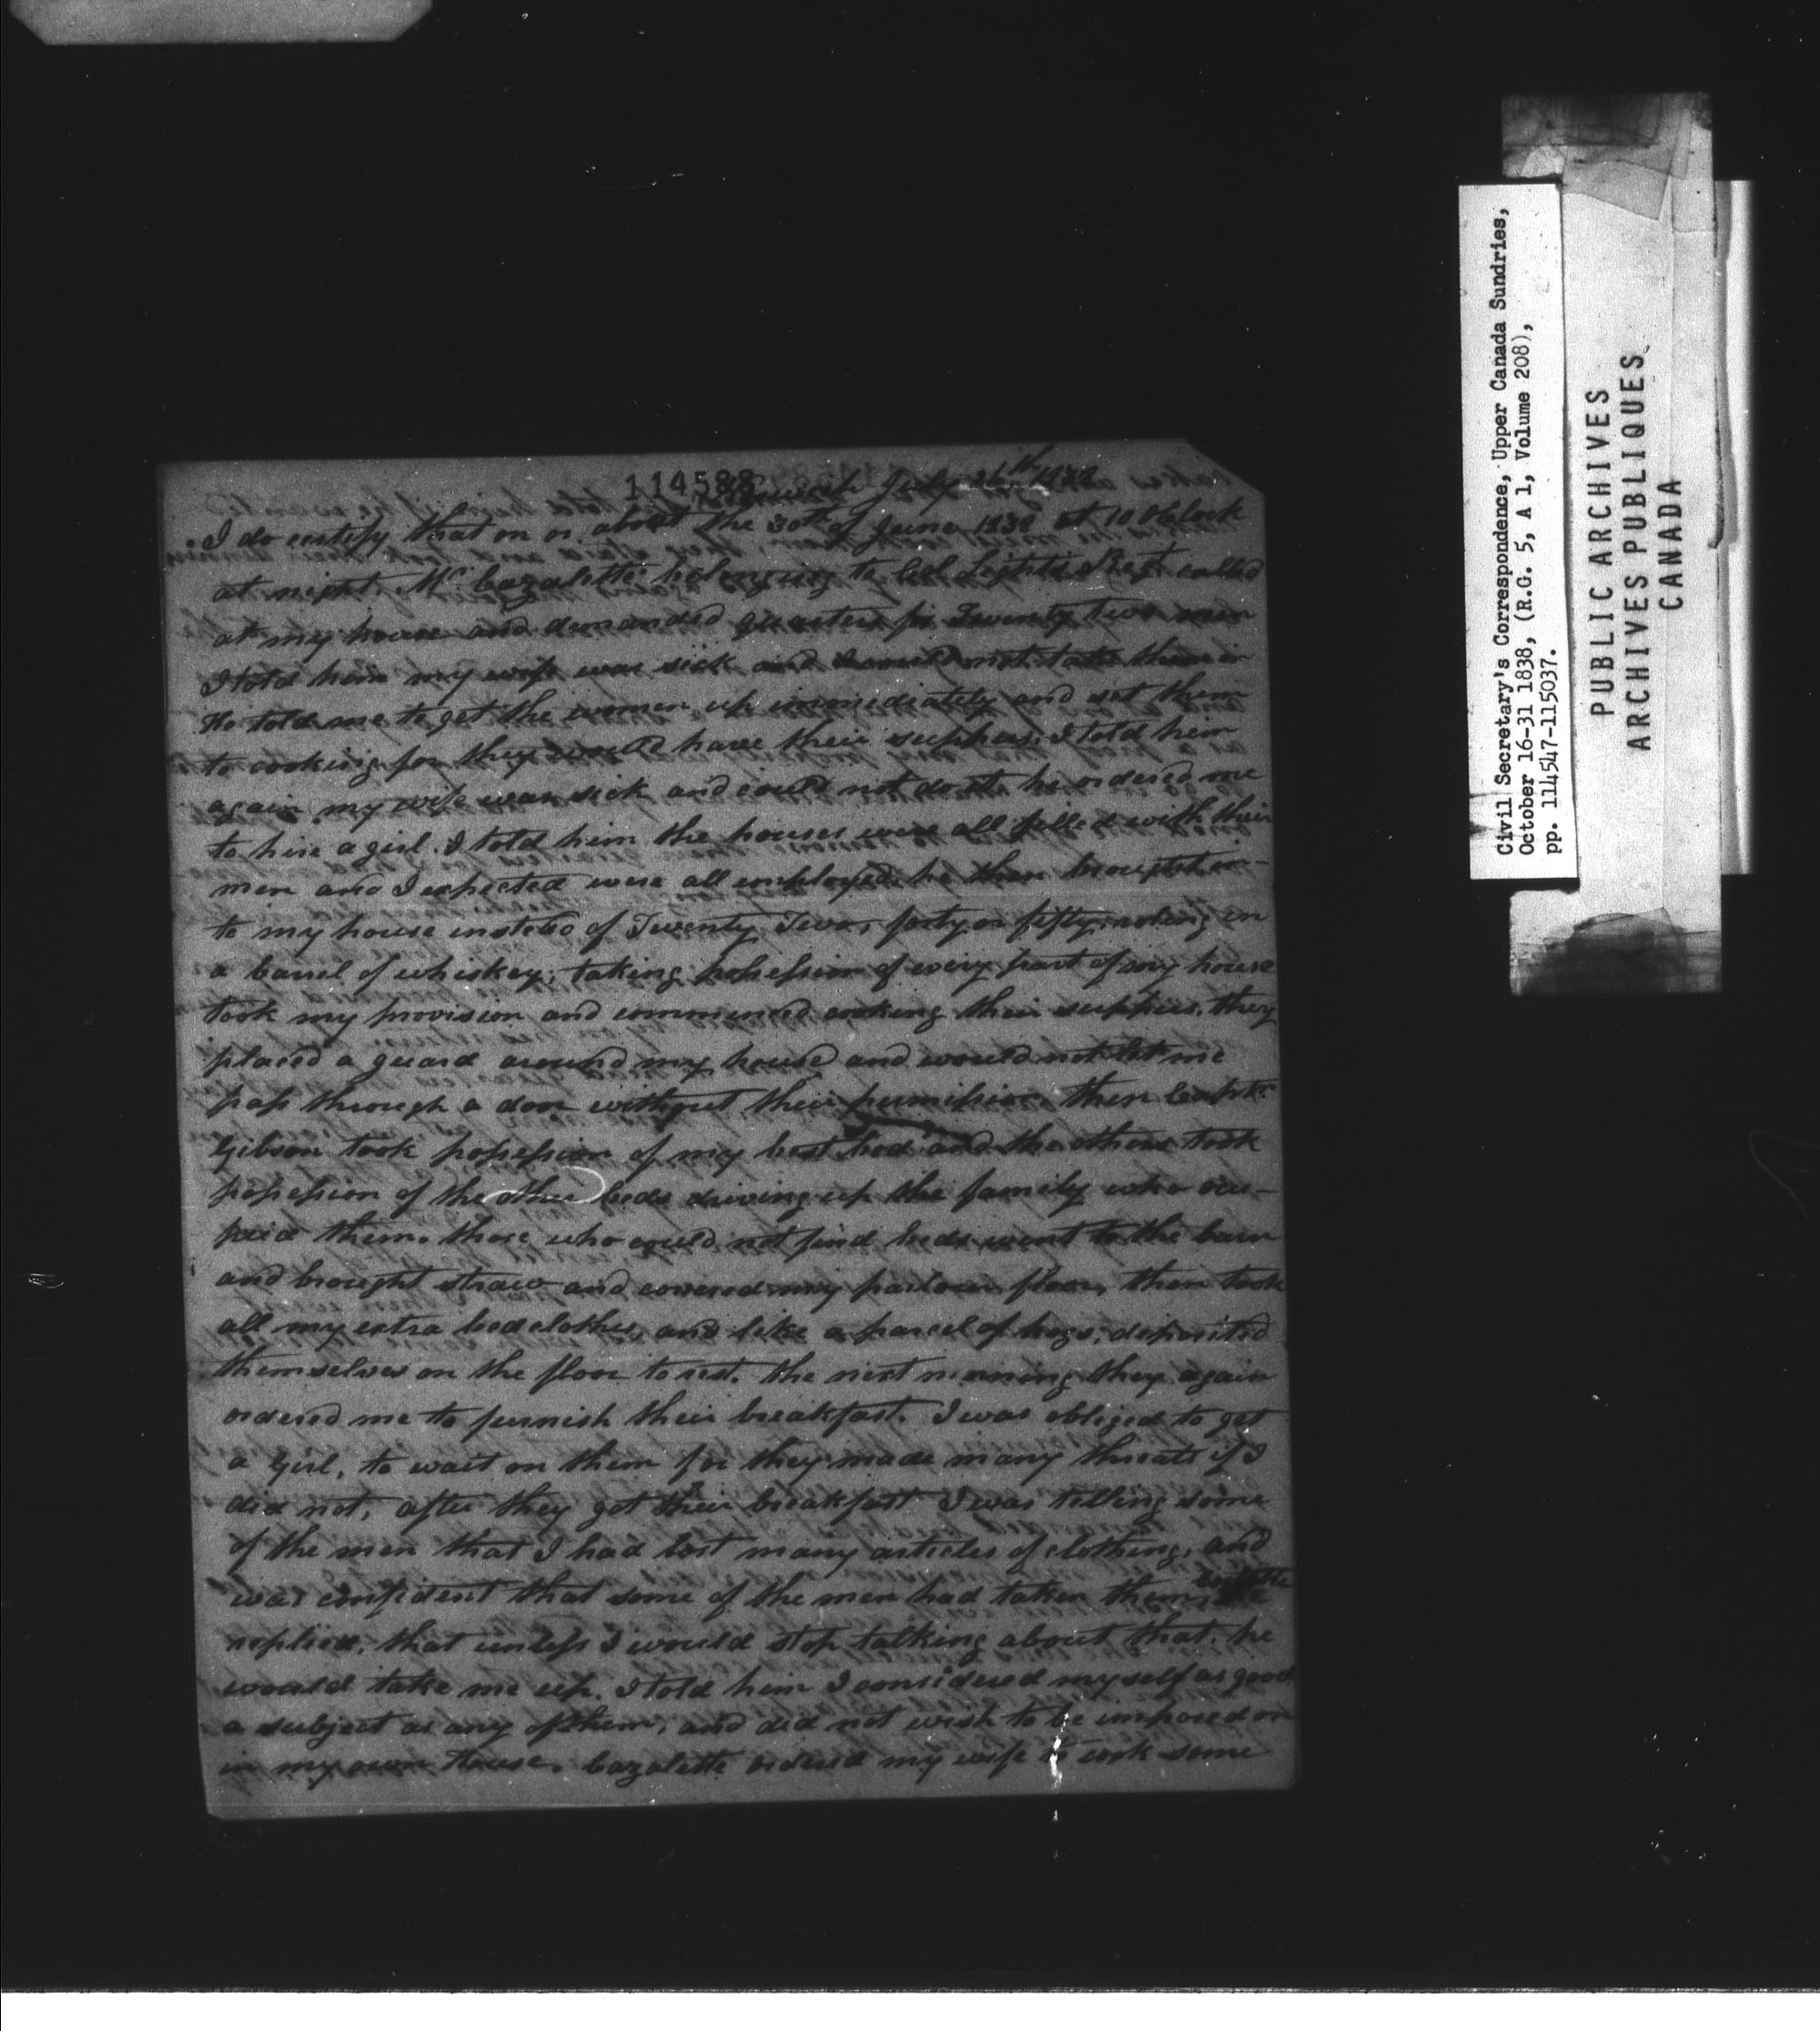 114588
Norwich July 26th 1838
I do certify that on or about the 30th of June 1838 at 10 Oclock
at night. Mr. Cazalette belonging to Col Light's Regt called
at my house and demanded quarters for Twenty two men
I told him my wife was sick and I could not take them in
He told me to get the women up immediately and set them
to cooking for they would have their suppers. I told him
again my wife was sick and could not do it he ordered me
to hire a girl. I told him the houses were all filled with their
men and I expected were all employed. he then brought in-
to my house instead of Twenty Two, forty or fifty, rolling in
a barrel of whiskey; taking possession of every part of my house
took my provision and commenced cooking their suppers, they
placed a guard around my house and would not let me
pass through a door without their permission. then Capt.
Gibson took possession of my best bed and the others took
possession of the other beds driving up the family who occu-
pied them. those who could not find beds went to the barn
and brought straw and covered my parlour floor, then took
all my extra bedclothes, and like a parcel of hogs, deposited
themselves on the floor to rest. the next morning they again
ordered me to furnish their breakfast. I was obliged to get
a Girl, to wait on them for they made many threats if I
did not, after they got their breakfast I was telling some
of the men that I had lost many articles of clothing, and
was confident that some of the men had taken them,
replied, that unless I would stop talking about that, he
would take me up. I told him I considered myself as good
a subject as any of them, and did not wish to be imposed on
in my own house. Cazalette ordered my wife to cook some
Civil Secretary's Correspondence, Upper Canada Sundries,
October 16-31 1838, (R.G. 5, A 1, Volume 208),
pp. 114547-115037.
PUBLIC ARCHIVES
ARCHIVES PUBLIQUES
CANADA